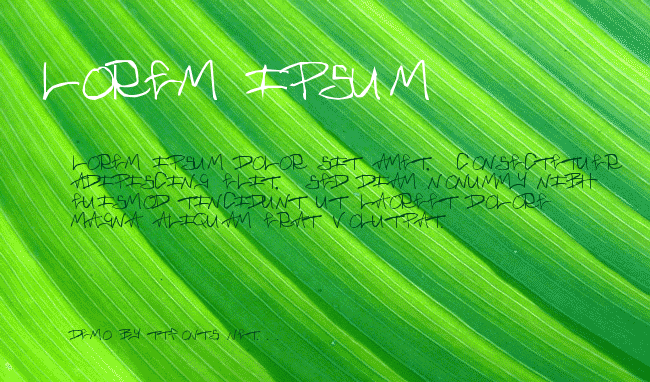 LOREM IPSUM
LOREM IPSUM DOLOR SIT AMET. CONSECTETUER
ADIPISCING ELIT. SED DIAM NONUMMY NIBH
EUISMOD TINCIDUNT UT LAOREET DOLORE
MAGNA ALIQUAM ERAT VOLUTPAT.
DEMO BY TTFONTS.NET. . .